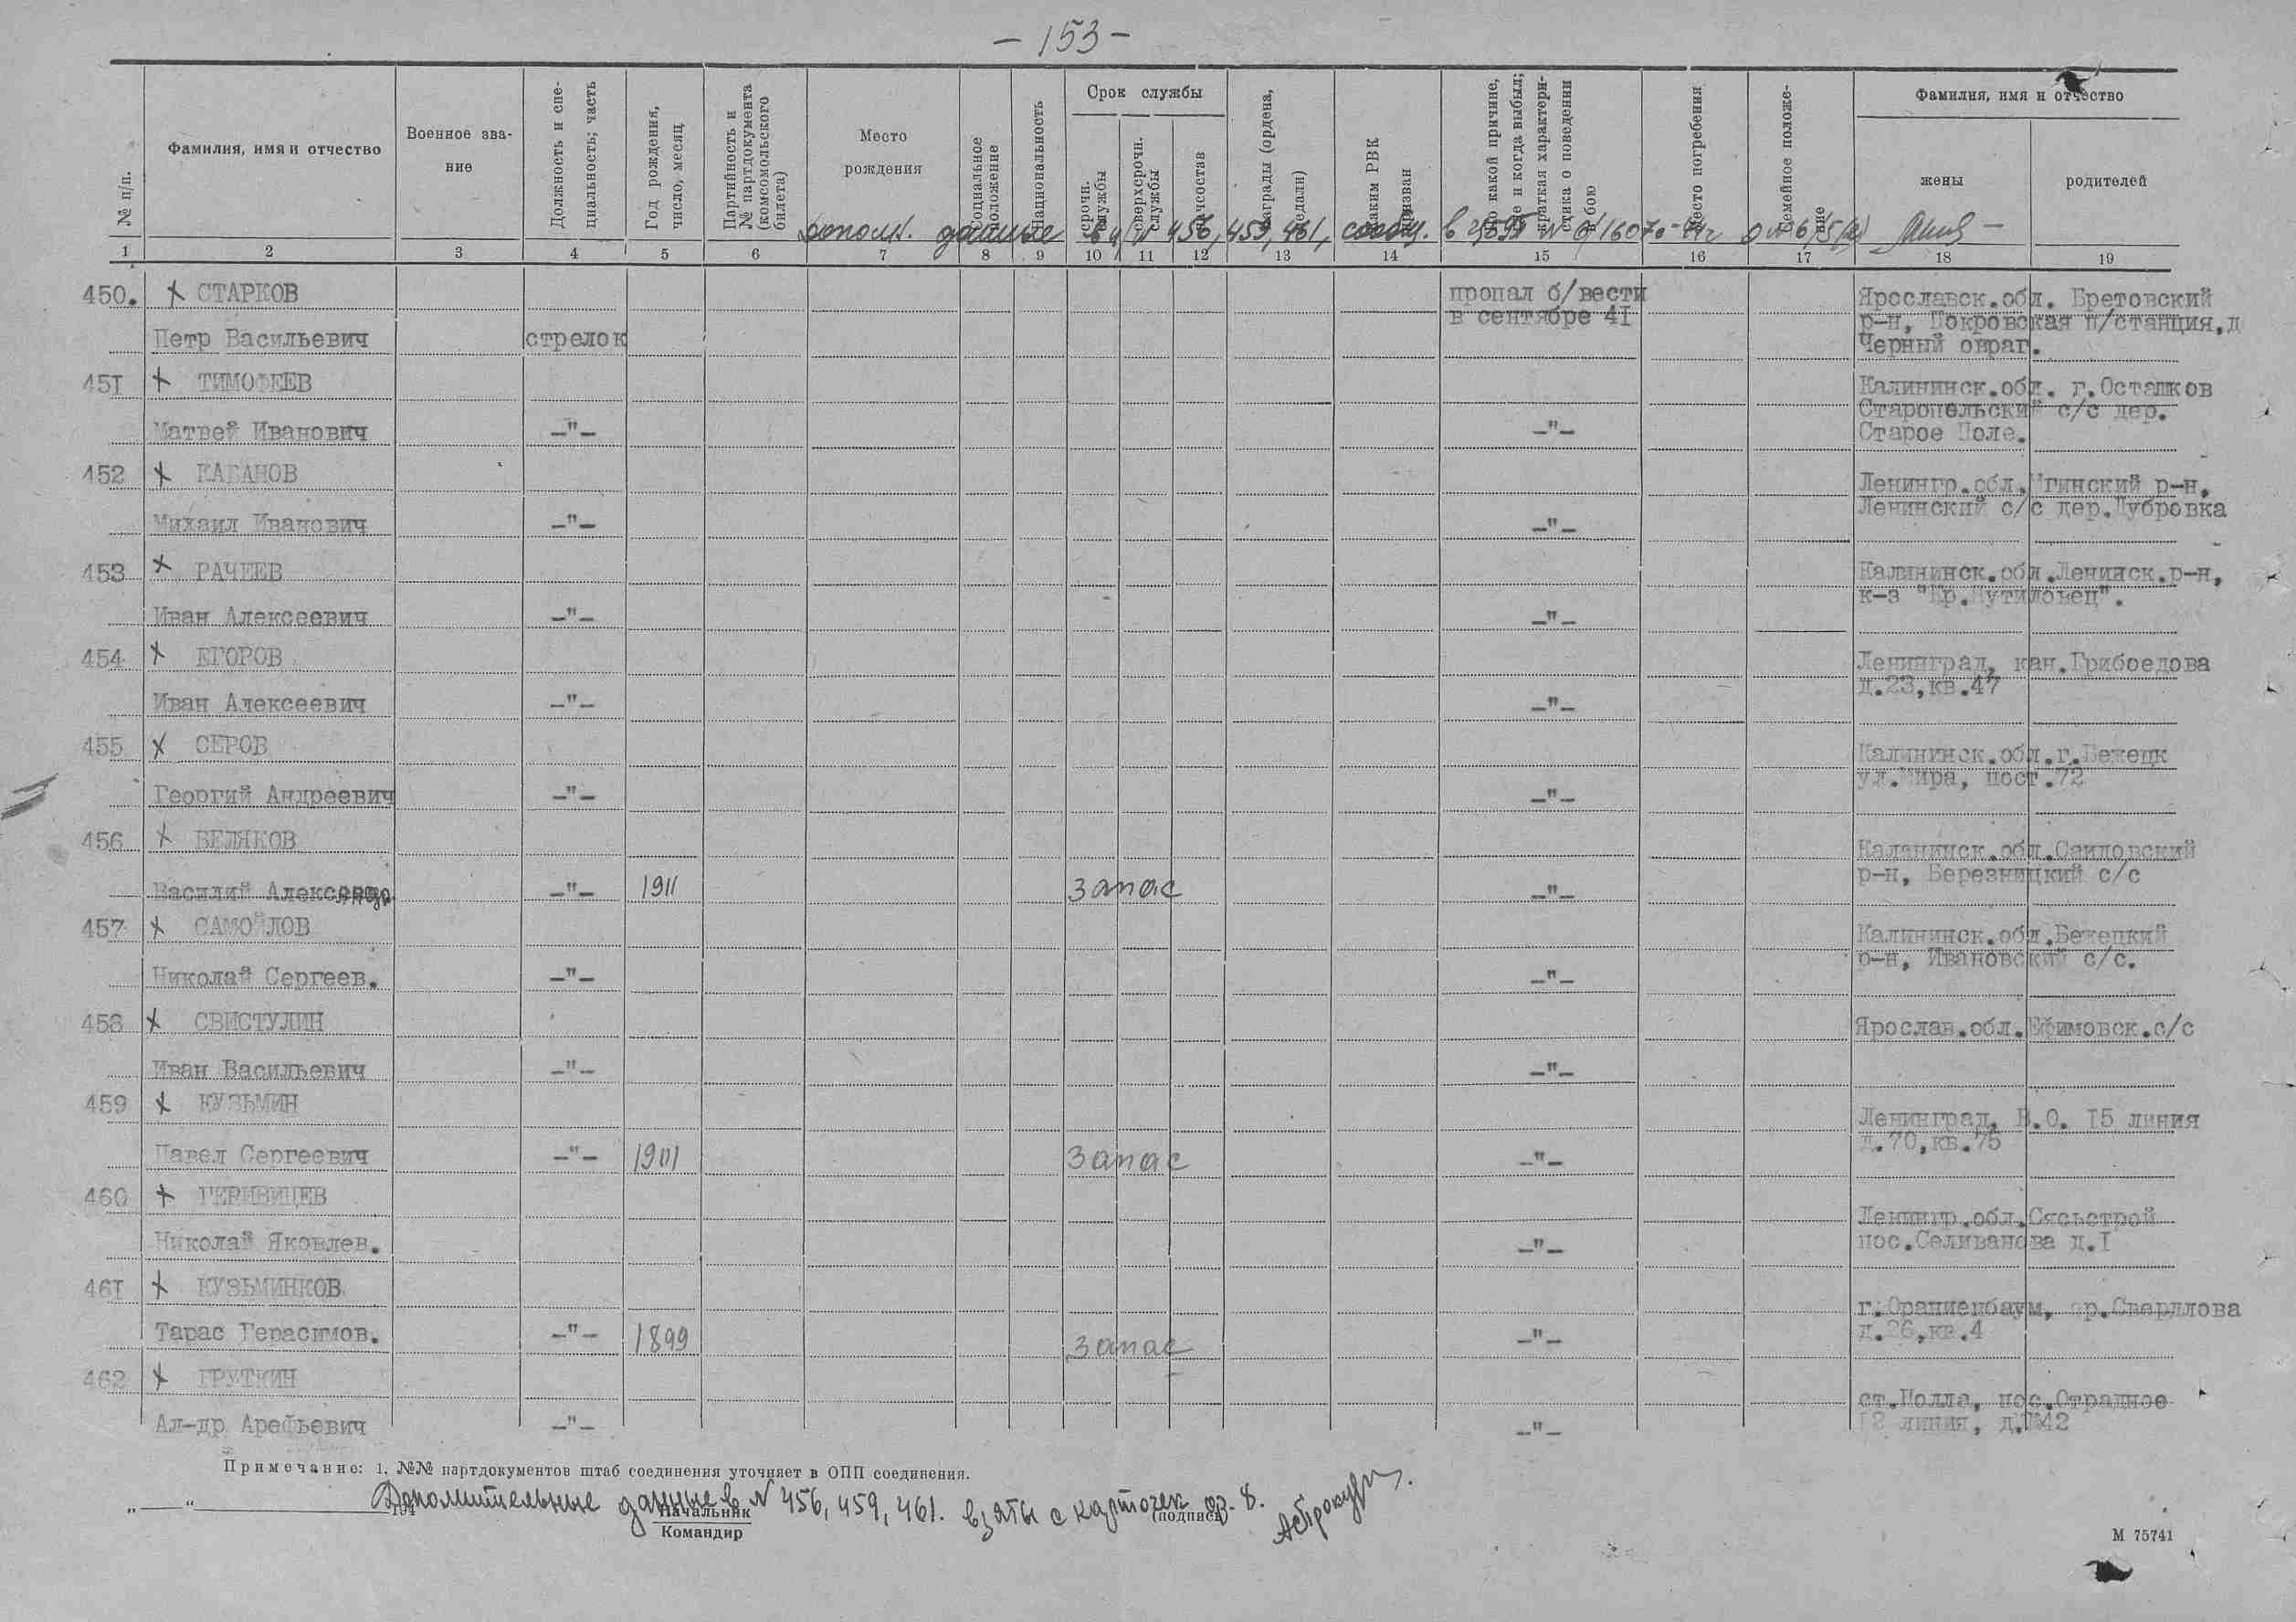 — 153 —
№ п/п.
Фамилия, имя и отчество
Военное зва-
ние
Должность и спе-
циальность; часть
Год рождения,
число, месяц
Партийность и
№ партдокумента
(комсомольского
билета)
Место
рождения
Социальное
положение
Национальность
Срок службы
срочн.
службы
сверхсрочн.
службы
начсостав
Награды (ордена,
медали)
Каким РВК
призван
По какой причине,
где и когда выбыл;
краткая характери-
стика о поведении
в бою
Место погребения
Семейное положе-
ние
Фамилия, имя и отчество
жены
родителей
дополн. данные 456, 459, 461, сообщ. в
1 2 3 4 5 6 7 8 9 10 11 12 13 14 15 16 17 18 19
450. СТАРКОВ
Петр Васильевич стрелок
пропал б/вести
в сентябре 4I
Ярославск.обл. Бретовский
р-н, Покровская п/станция,д
Черный овраг.
45I ТИМОФЕЕВ
Матвей Иванович -"- -"-
Калининск.обл. г.Осташков
Старопольский с/с дер.
Старое Поле.
452 КАБАНОВ
Михаил Иванович -"- -"-
Ленингр.обл.Мгинский р-н,
Ленинский с/с дер.Дубровка
453 РАЧЕЕВ
Иван Алексеевич -"- -"-
Калининск.обл.Ленинск.р-н,
к-з "Кр.Путиловец".
454 ЕГОРОВ
Иван Алексеевич -"- -"-
Ленинград, кан.Грибоедова
д.23,кв.47
455 СЕРОВ
Георгий Андреевич -"- -"-
Калининск.обл.г.Бежецк
ул.Мира, пост.72
456 БЕЛЯКОВ
Василий -"- 1911 запас -"-
Калининск.обл.
р-н, Березницкий с/с
457 САМОЙЛОВ
Николай Сергеев. -"- -"-
Калининск.обл.Бежецкий
р-н, Ивановский с/с.
458 СВИСТУЛИН
Иван Васильевич -"- -"-
Ярослав.обл.Ефимовск.с/с
459 КУЗЬМИН
Павел Сергеевич -"- 1901 запас -"-
Ленинград, В.О. I5 линия
д.70,кв.75
460
Николай Яковлев. -"-
Ленингр.обл.Сясьстрой
пос.Селиванова д.I
46I КУЗЬМИНКОВ
Тарас Герасимов. -"- 1899 запас -"-
г.Ораниенбаум, пр.Свердлова
д.26,кв.4
462 ПРУТКИН
Ал-др Арефьевич -"- -"-
ст.Пелла, пос.Отрадное
I2 линия, д.№42
Примечание: 1. №№ партдокументов штаб соединения уточняет в ОПП соединения.
„ — “ 194
Дополнительные данные в N 456, 459, 461. взяты с карточек
Начальник
Командир
(подпись)
М 75741